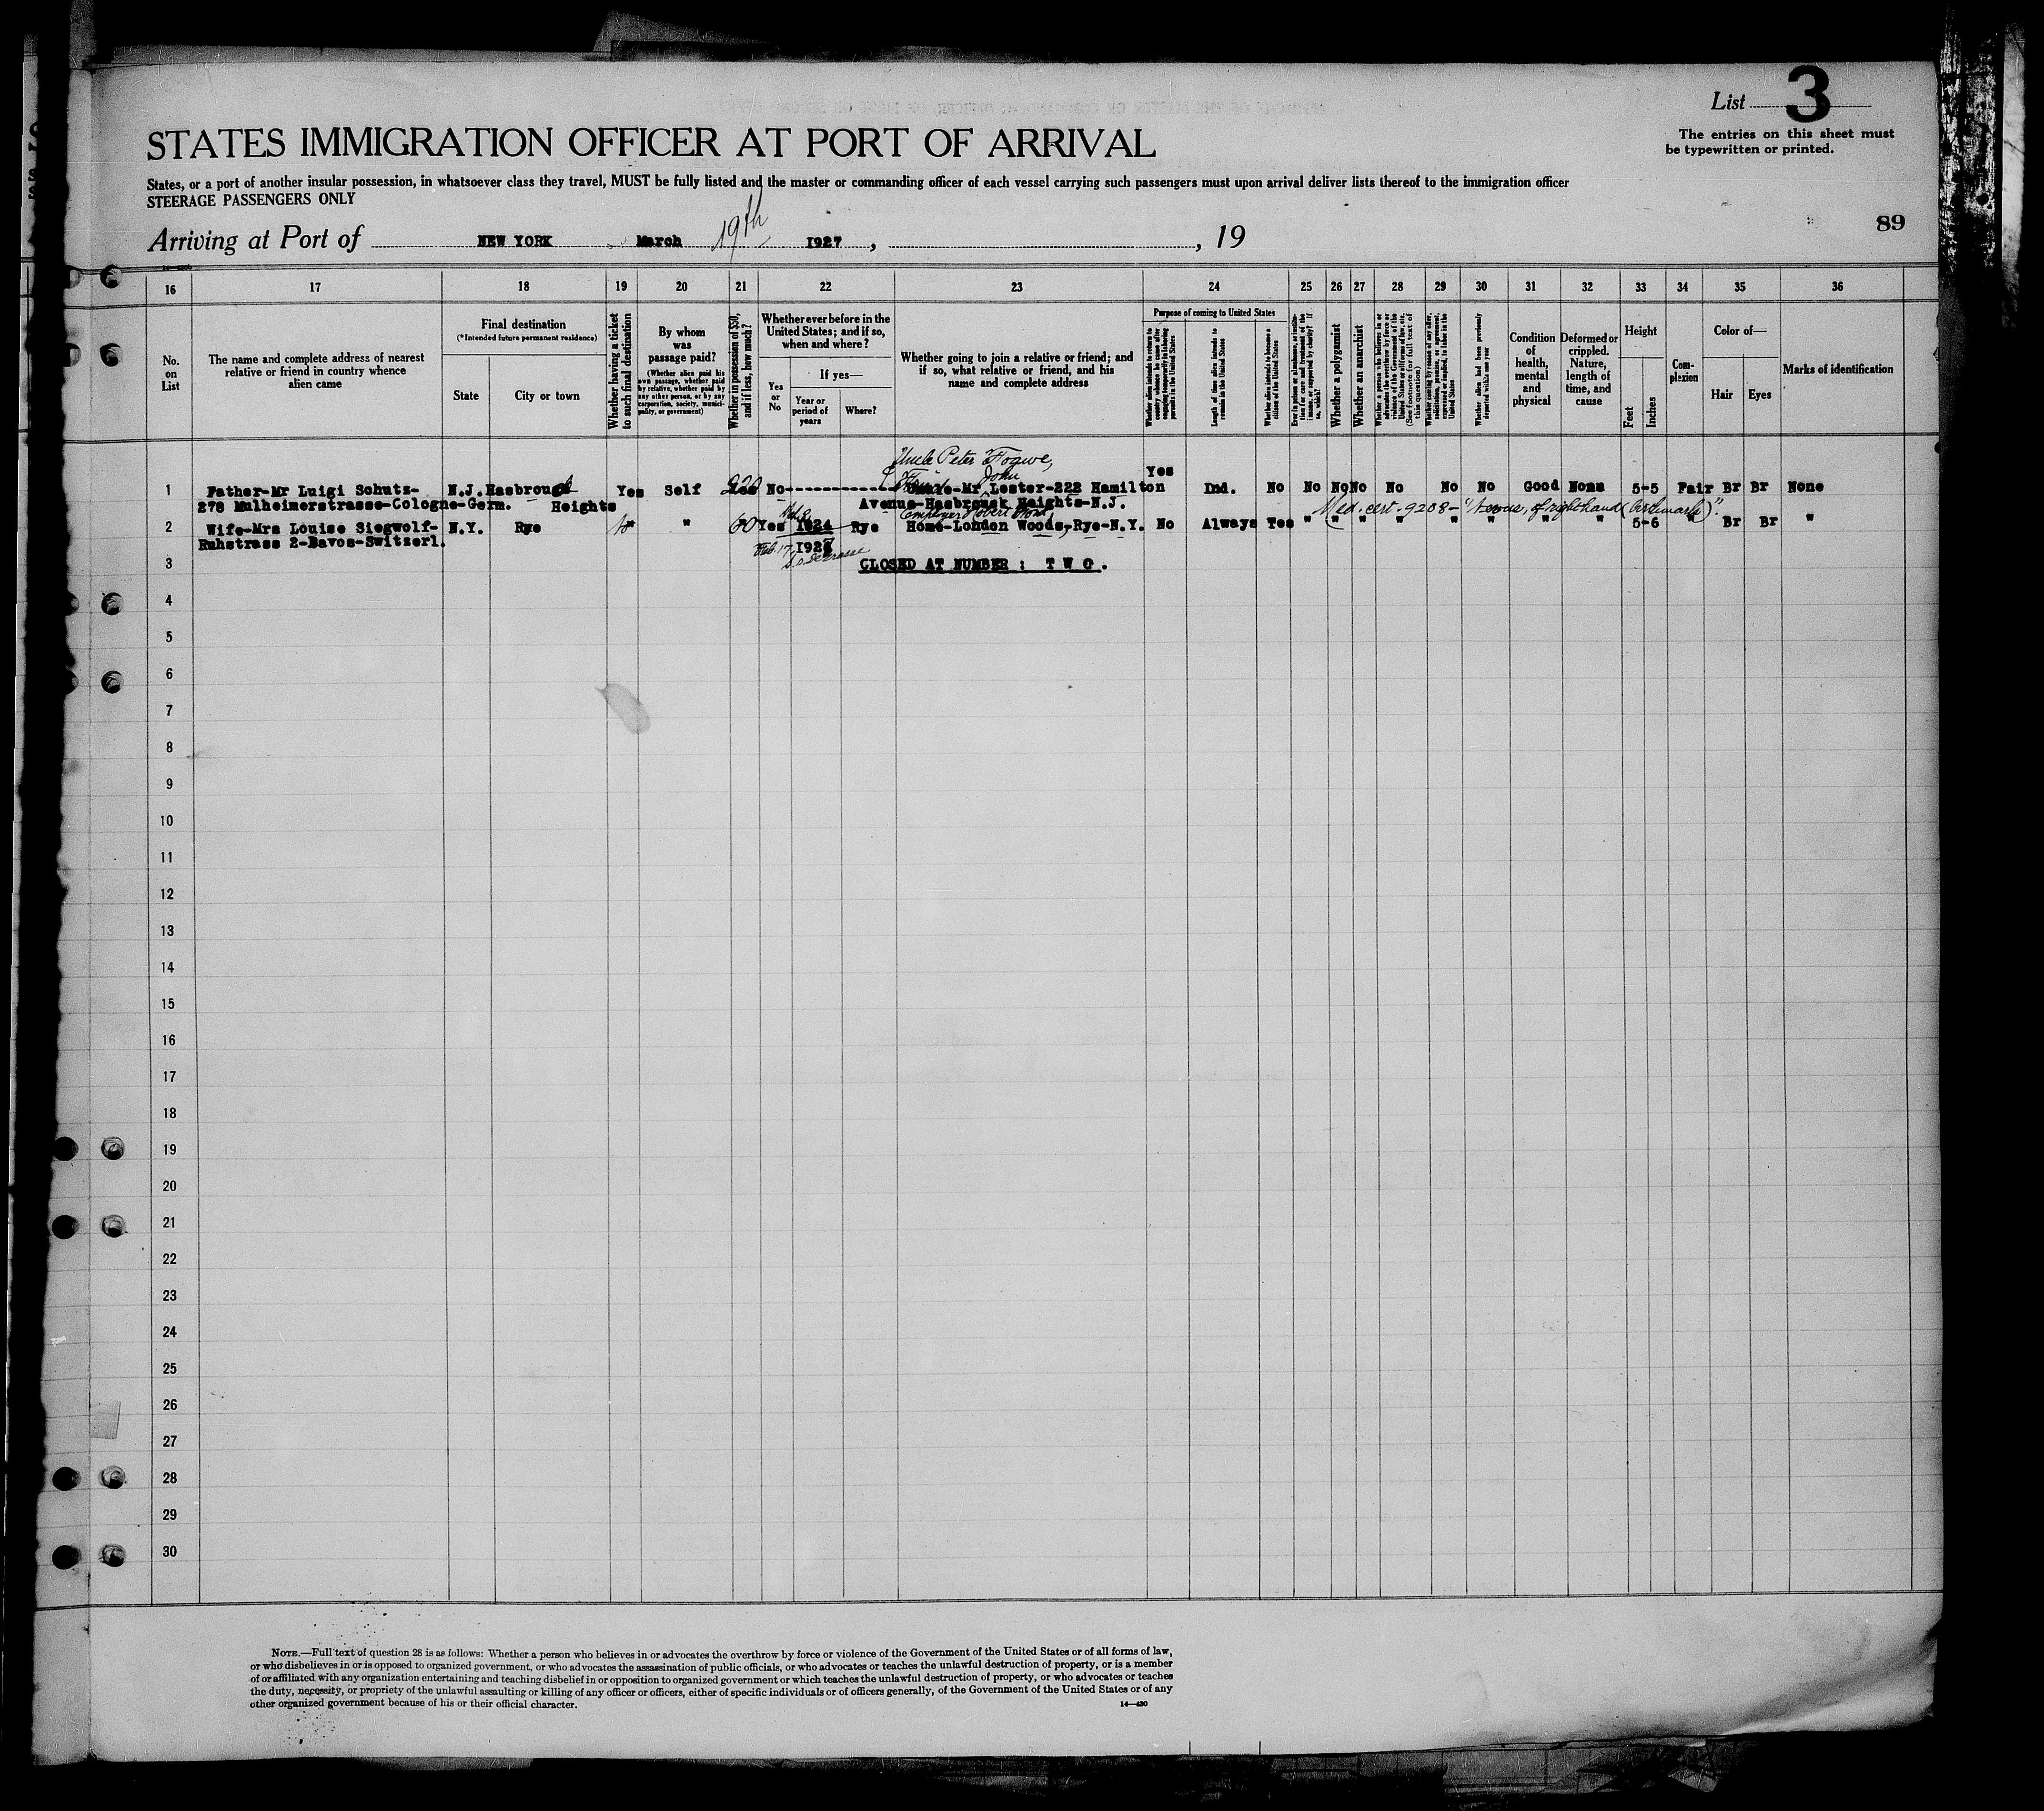 List 3
The entries on this sheet must
be typewritten or printed.
STATES IMMIGRATION OFFICER AT PORT OF ARRIVAL
States, or a port of another insular possession, in whatsoever class they travel, MUST be fully listed and the master or commanding officer of each vessel carrying such passengers must upon arrival deliver lists thereof to the immigration officer
STEERAGE PASSENGERS ONLY
89
Arriving at Port of NEW YORK March 19th 1927, , 19
16 17 18 19 20 21 22 23 24 25 26 27 28 29 30 31 32 33 34 35 36
No.
on
List
The name and complete address of nearest
relative or friend in country whence
alien came
Final destination
(*Intended future permanent residence)
State
City or town
Whether having a ticket
to such final destination
By whom
was
passage paid?
(Whether alien paid his
own passage, whether paid
by relative, whether paid by
any other person, or by any
corporation, society, munici-
pality, or government)
Whether in possession of $50,
and if less, how much?
Whether ever before in the
United States; and if so,
when and where?
Yes
or
No
If yes—
Year or
period of
years
Where?
Whether going to join a relative or friend; and
if so, what relative or friend, and his
name and complete address
Purpose of coming to United States
Whether alien intends to return to
country whence he came after
engaging temporarily in laboring
pursuits in the United States
Length of time alien intends to
remain in the United States
Whether alien intends to become a
citizen of the United States
Whether a polygamist
Whether an anarchist
Whether alien had been previously
deported within one year
Condition
of
health,
mental
and
physical
Deformed or
crippled.
Nature,
length of
time, and
cause
Height
Feet
Inches
Com-
plexion
Color of—
Hair
Eyes
Marks of identification
Uncle Peter
John
1 Father-Mr Luigi Schutz- N.J. Hasbrouck Yes Self 220 No Mr Lester-222 Hamilton Yes Ind. No No No No No No No Good None 5-5 Fair Br Br None
278 Mulheimerstrasse-Cologne-Germ. Heights Avenue-Hasbrouck Heights-N.J.
Med. cert. 9208- of right hand (birthmark)".
Employer Robert
2 Wife-Mrs Louise Siegwolf- N.Y. Rye " " 60 Yes 1924 Rye Home-London Woods,Rye-N.Y. No Always Yes " " " " " " " " 5-6 " Br Br "
Ruhstrass 2-Davos-Switzerl. Feb. 17, 1927
3 CLOSED AT NUMBER : T W O .
4
5
6
7
8
9
10
11
12
13
14
15
16
17
18
19
20
21
22
23
24
25
26
27
28
29
30
NOTE.—Full text of question 28 is as follows: Whether a person who believes in or advocates the overthrow by force or violence of the Government of the United States or of all forms of law,
or who disbelieves in or is opposed to organized government, or who advocates the assassination of public officials, or who advocates or teaches the unlawful destruction of property, or is a member
of or affiliated with any organization entertaining and teaching disbelief in or opposition to organized government or which teaches the unlawful destruction of property, or who advocates or teaches
the duty, necessity, or propriety of the unlawful assaulting or killing of any officer or officers, either of specific individuals or of officers generally, of the Government of the United States or of any
other organized government because of his or their official character.
14—430